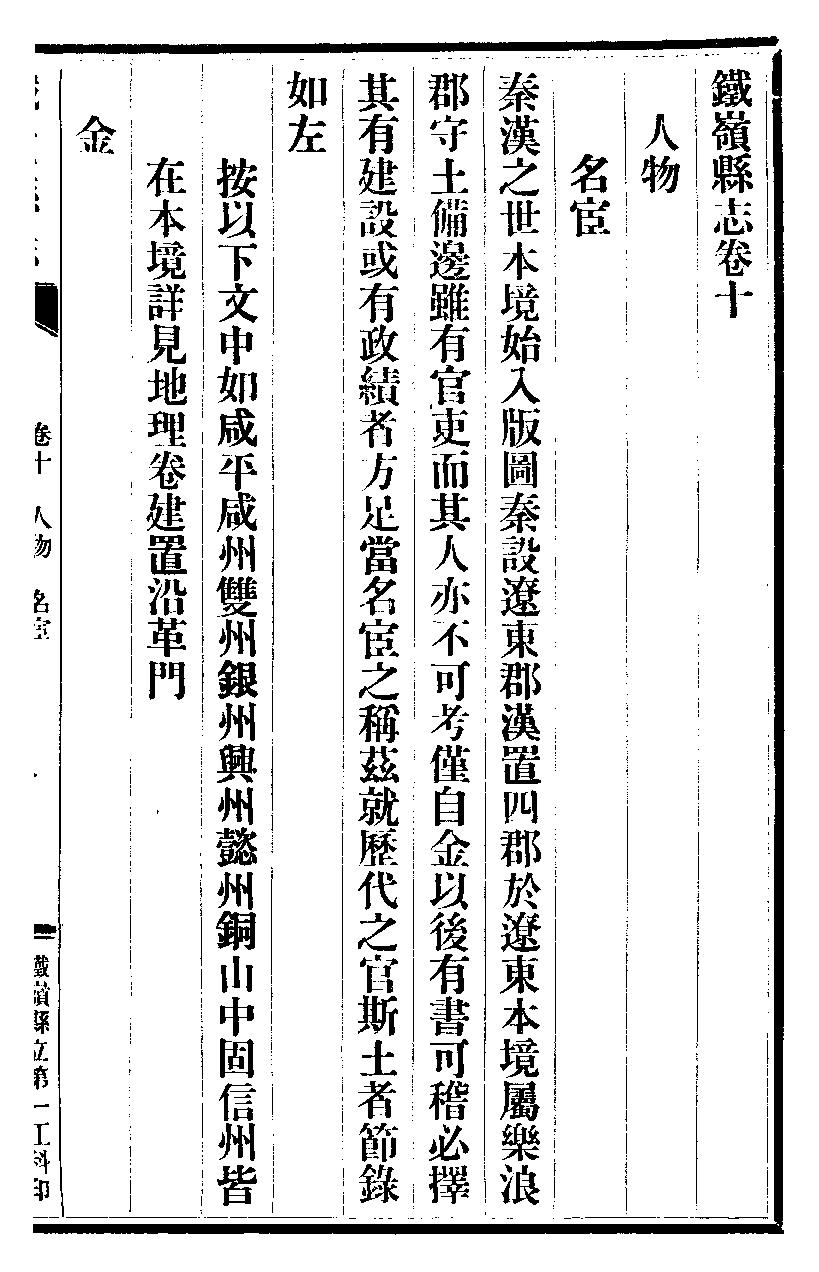 鐵嶺縣志卷十
人物
名宦
秦漢之世本境始入版圖秦設遼東郡漢置四郡於遼東本境屬樂浪
郡守土備邊雖有官吏而其人亦不可考僅自金以後有書可稽必擇
其有建設或有政績者方足當名宦之稱茲就歷代之官斯土者節錄
如左
按以下文中如咸平咸州雙州銀州興州懿州銅山中固信州皆
在本境詳見地理卷建置沿革門
金
卷十 人物 名宦
鐵嶺縣立第一工科印